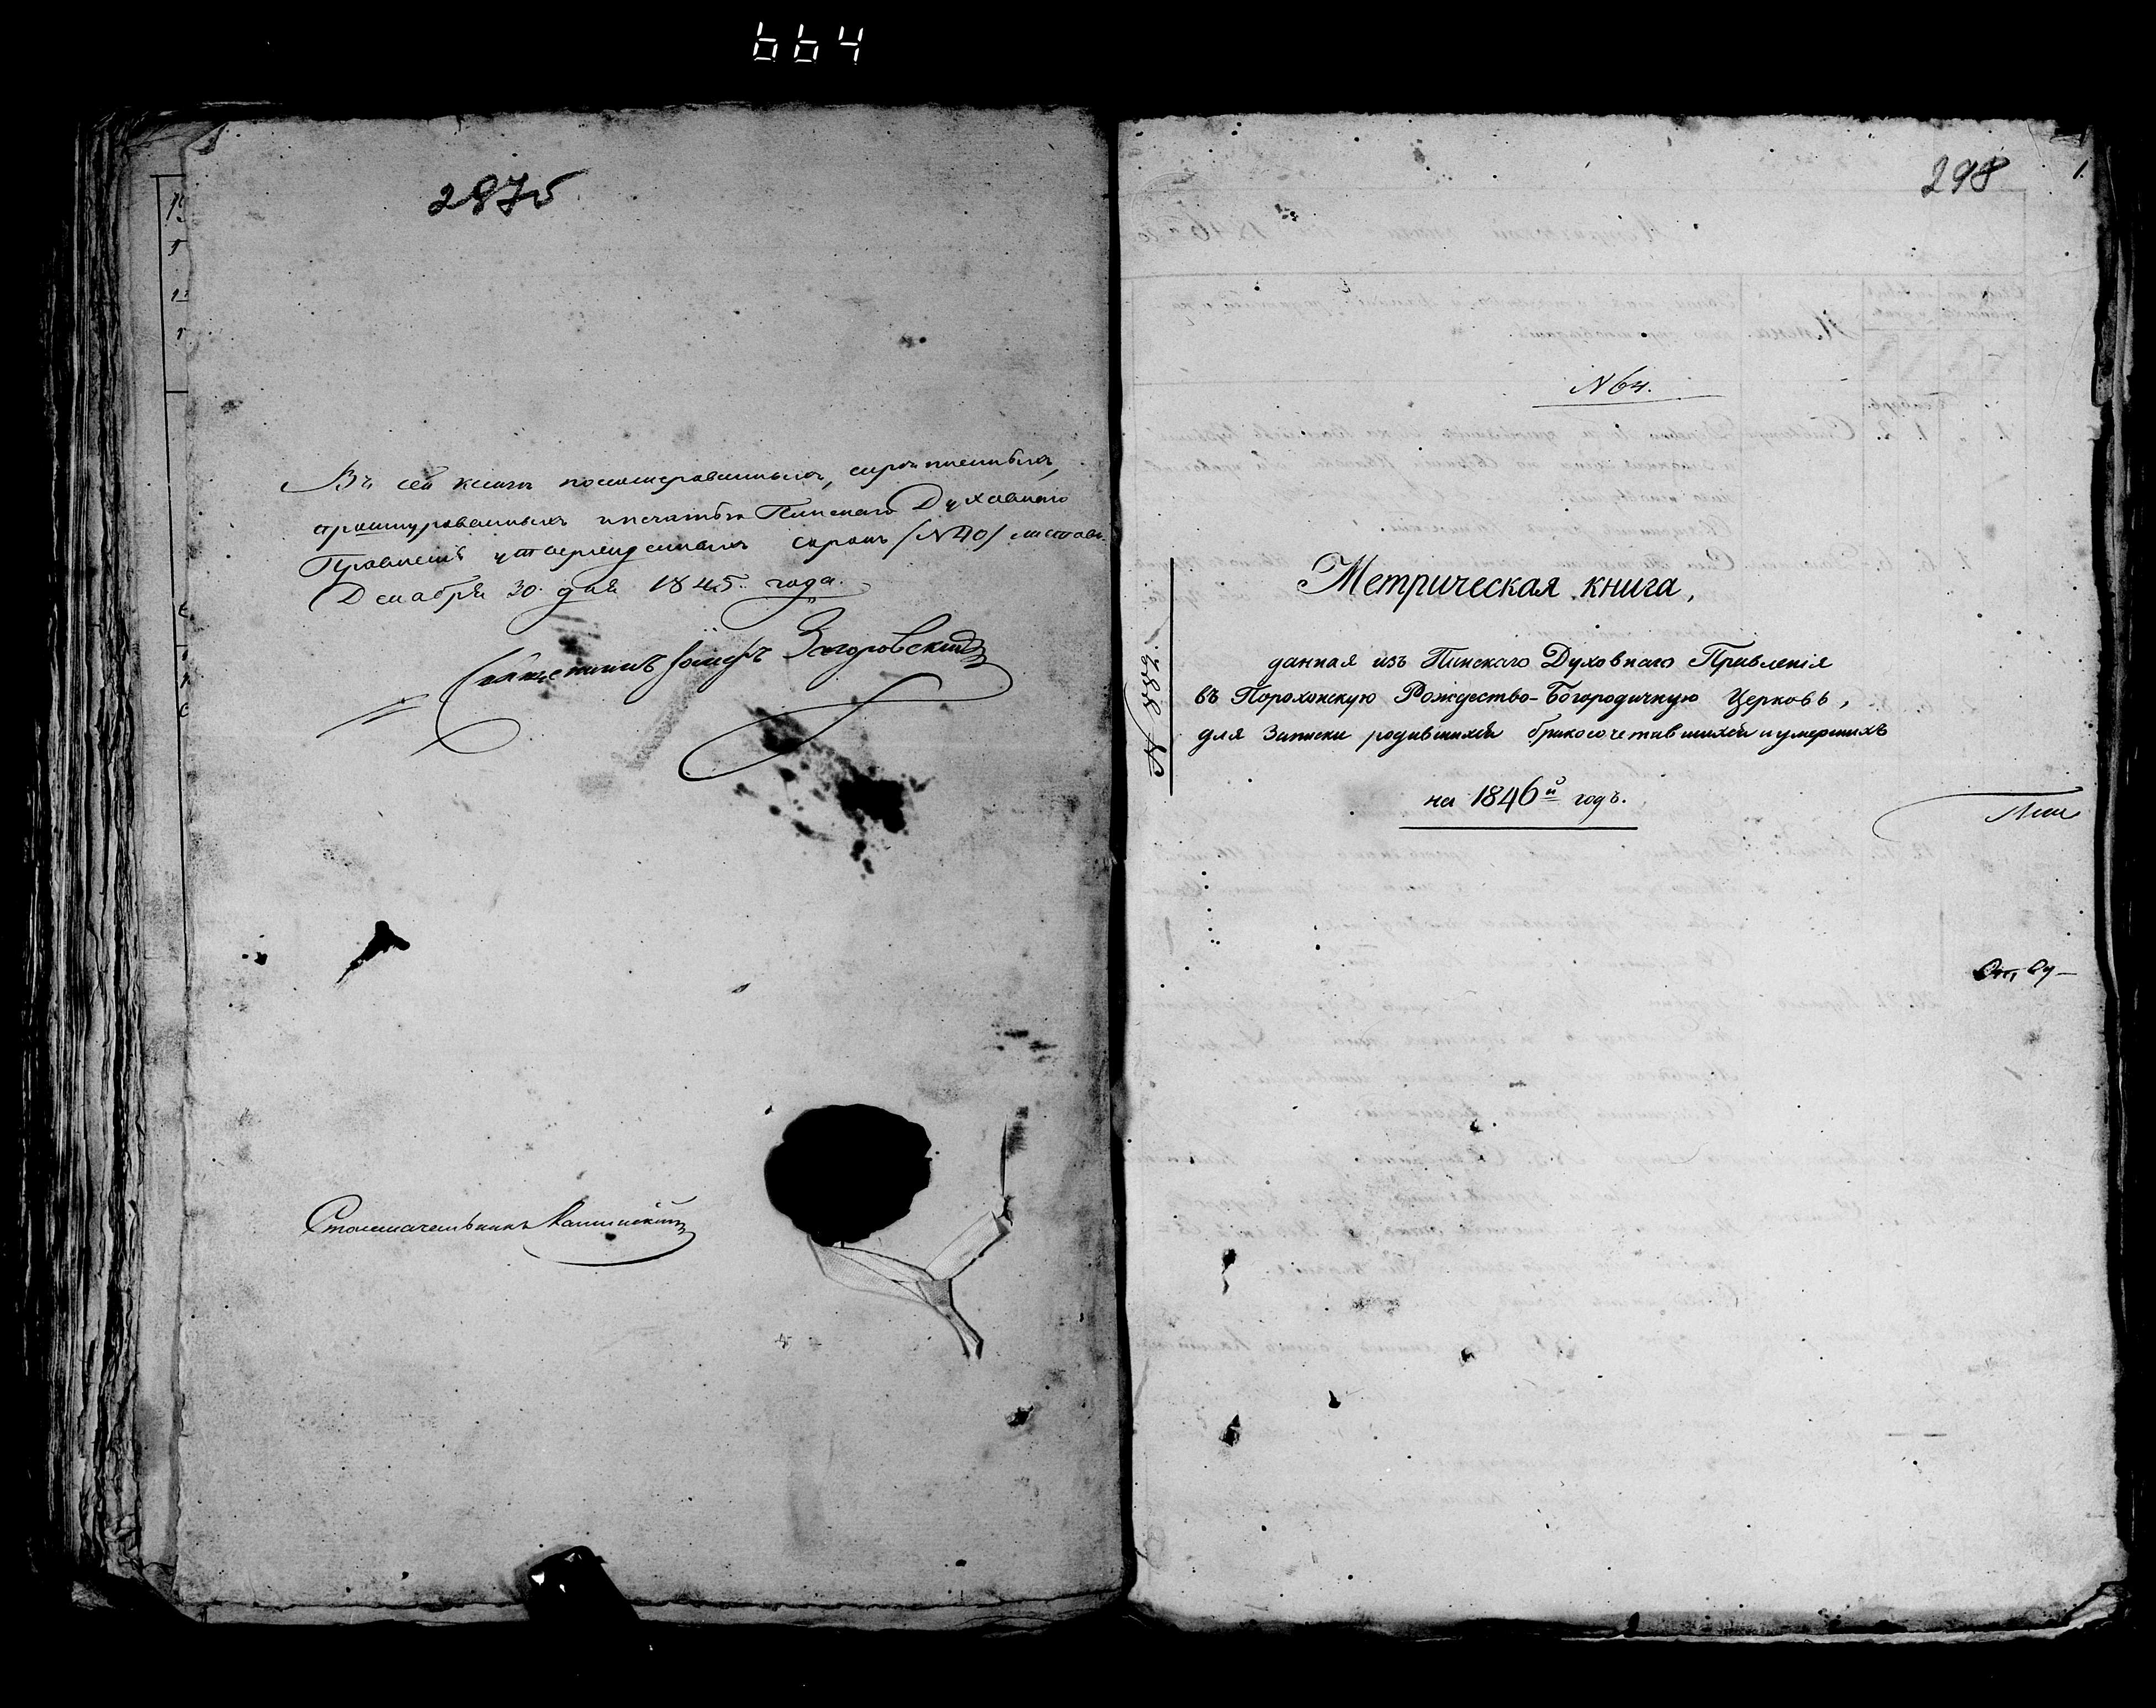 664
2875
Въ сей книгѣ пономерованныхъ, скрѣпленныхъ,
прошнурованныхъ и печатью Пинскаго Духовнаго
Правленія утвержденныхъ сорокъ (N 40) листовъ.
Декабря 30 дня 1845 года.
Священникъ Іосифъ Загоровскій
Столоначальникъ
298
1.
N 64.
N 882.
Метрическая книга,
данная изъ Пинскаго Духовнаго Правленія
въ Порохонскую Рождество-Богородичную Церковь,
для записки родившихся бракосочетавшихся и умершихъ
на 1846й годъ.